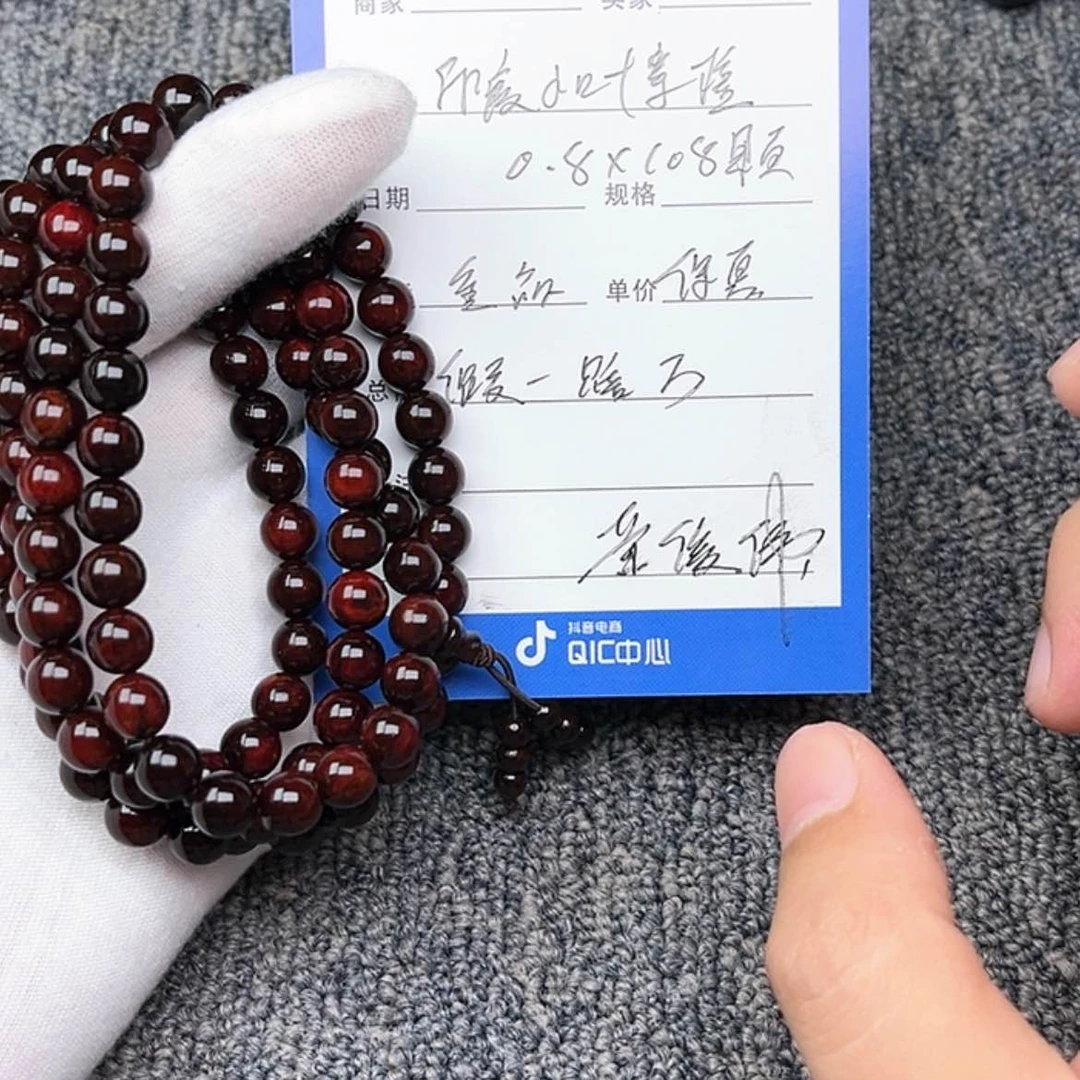 商家 买家
印度小叶紫檀
0.8×108颗
日期 规格
单价 保真
总 假一赔万
抖音电商
QIC中心